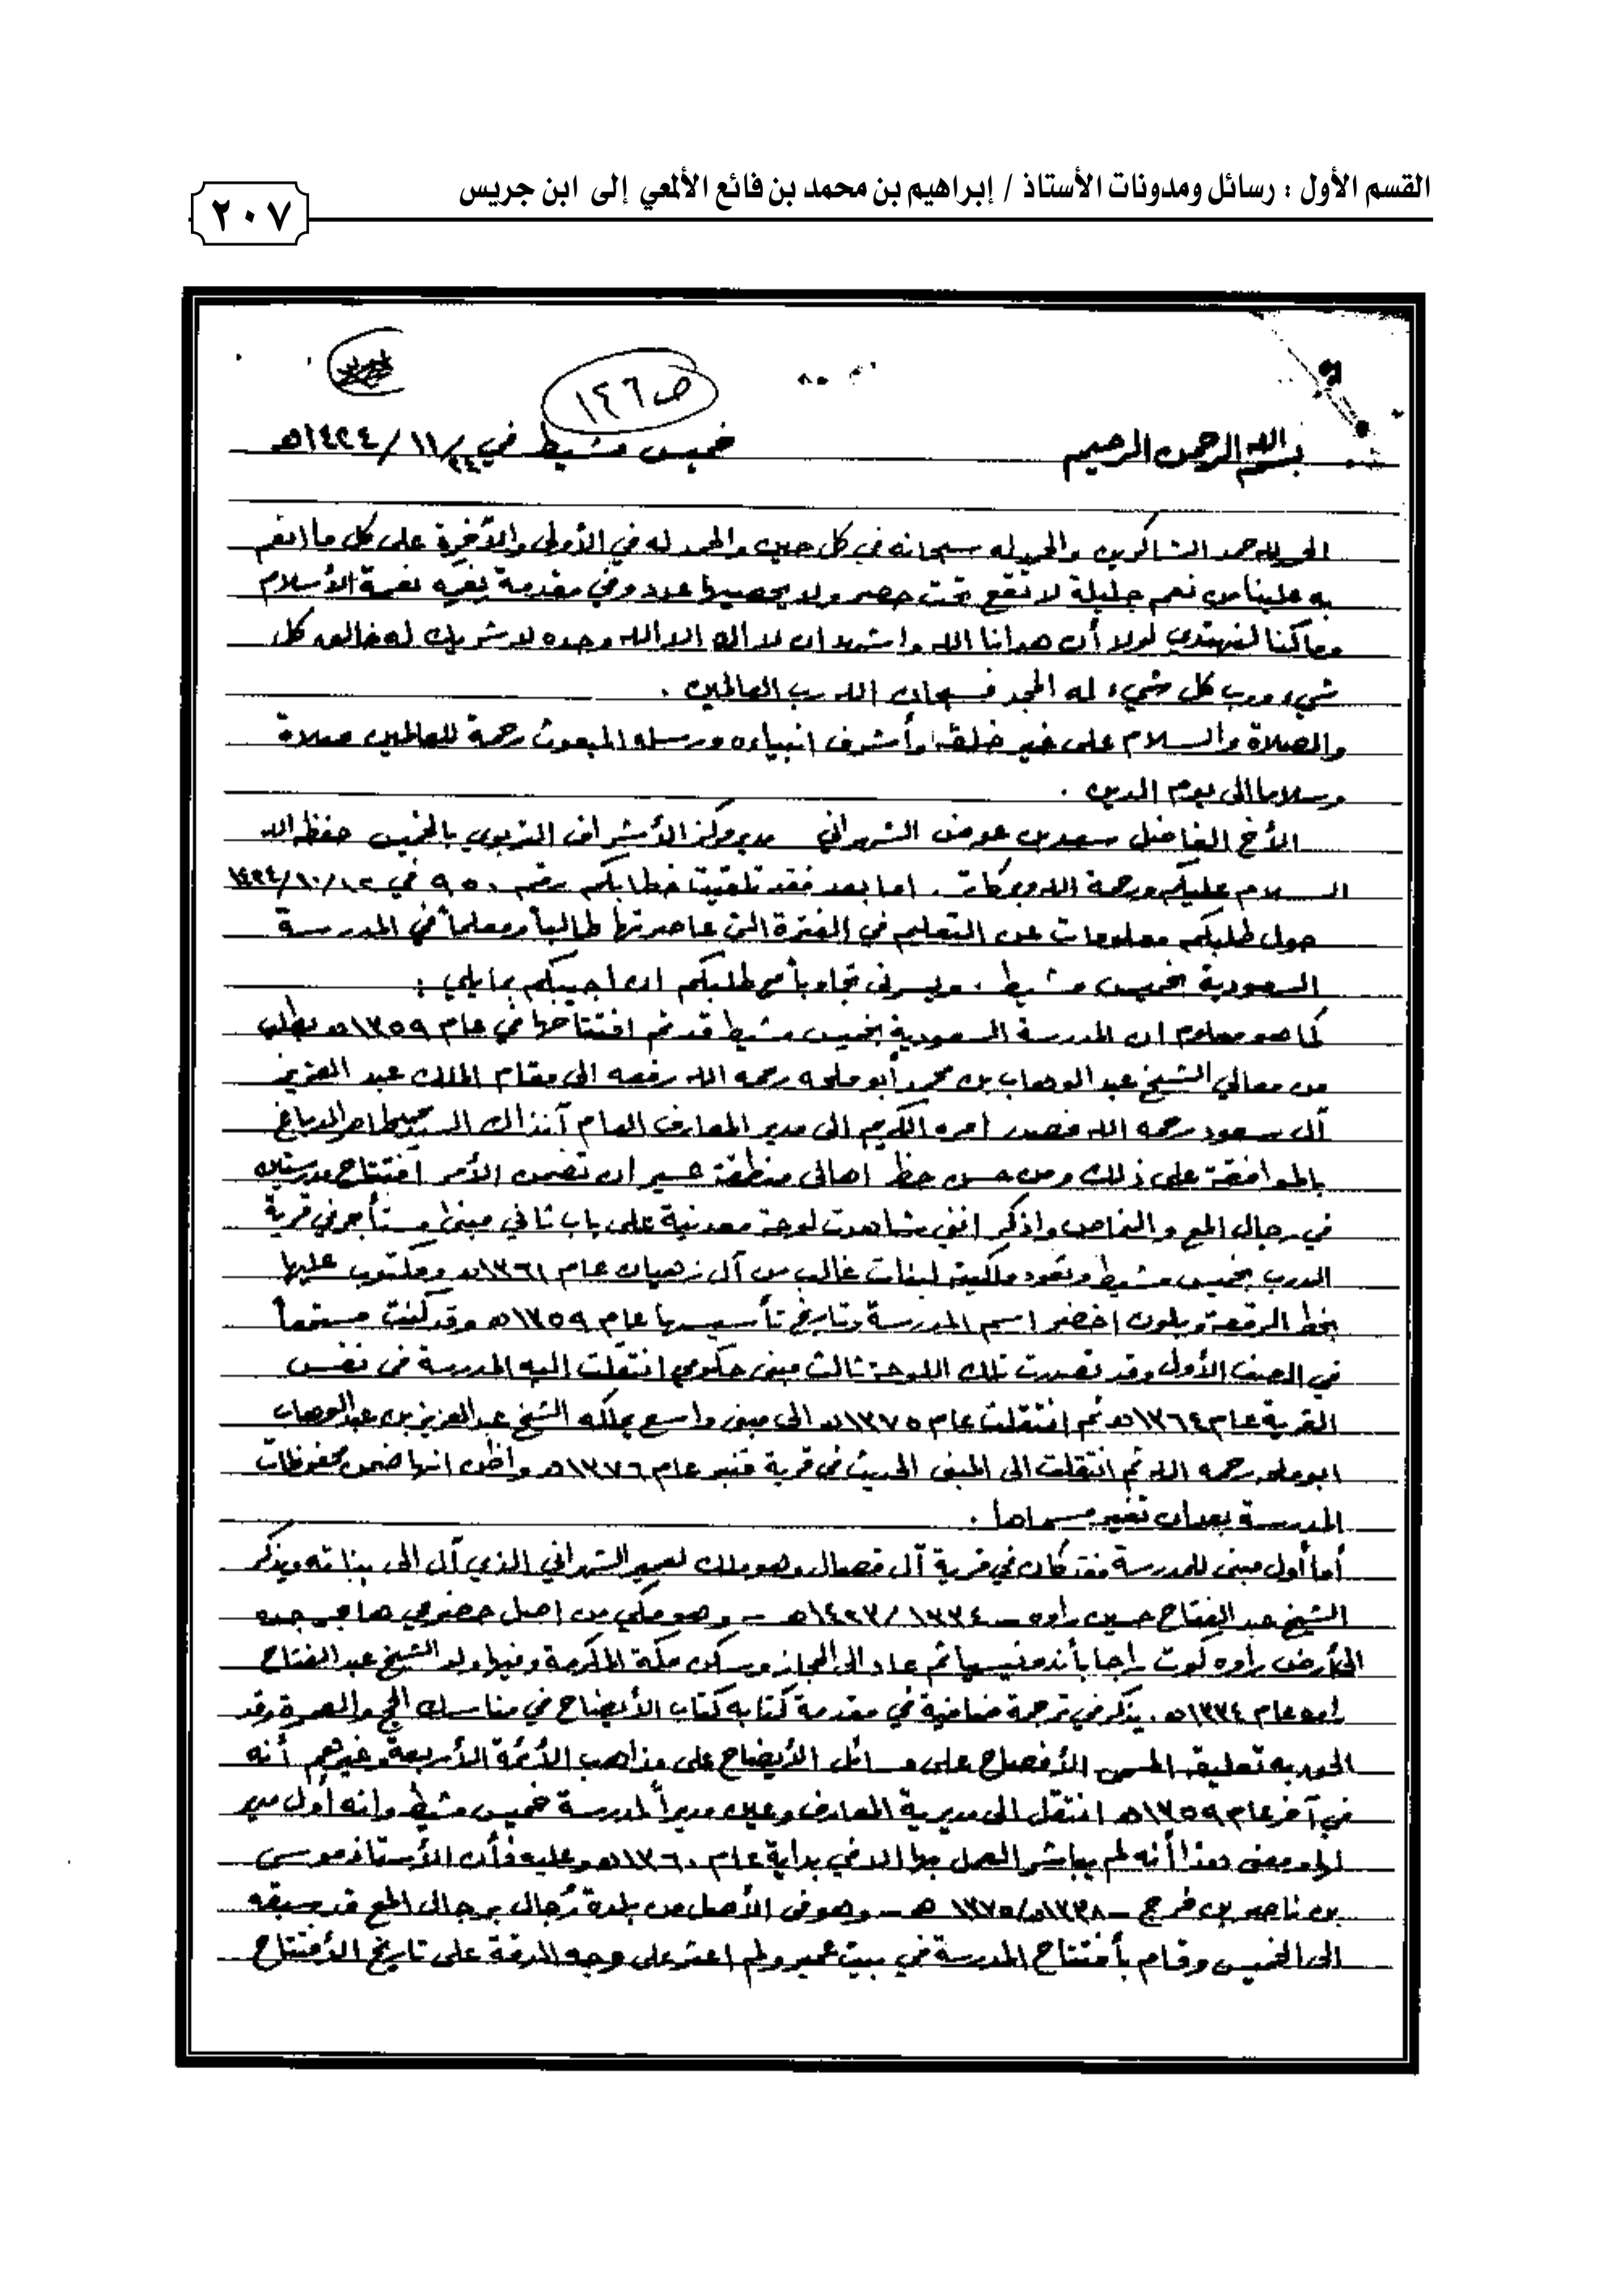 القسم الأول : رسائل ومدونات الأستاذ / إبراهيم بن محمد بن فائع الألمعي إلى ابن جريس
٢٠٧
ص١٤٦
بسم الله الرحمن الرحيم
خميس مشيط في ٢٤/١١/١٤٢٤هـ
الحمد لله حمد الشاكرين والحمد له سبحانه في كل حين والحمد له في الأولى والآخرة على كل ما انعم
به علينا من نعم جليلة لا تقع تحت حصر ولا يحصيها عدد وفي مقدمة نعمه نعمة الأسلام
وما كنا لنهتدي لولا أن هدانا الله واشهد ان لا اله الا الله وحده لا شريك له خالق كل
شيء ورب كل شيء له المجد فسبحان الله رب العالمين .
والصلاة والسلام على خير خلقه وأشرف انبياءه ورسله المبعوث رحمة للعالمين صلاة
وسلاما الى يوم الدين .
الأخ الفاضل سعد بن عوض الشهراني مدير مركز الأشراف التربوي بالخميس حفظه الله
السلام عليكم ورحمة الله وبركاته . اما بعد فقد تلقيت خطابكم رقم ٩٥٠ في ١٢/١٠/١٤٢٤
حول طلبكم معلومات عن التعليم في الفترة التي عاصرتها طالباً ومعلماً في المدرسة
السعودية بخميس مشيط . ويسرني تجاوباً مع طلبكم ان اجيبكم بما يلي :
كما هو معلوم ان المدرسة السعودية بخميس مشيط قد تم افتتاحها في عام ١٣٥٩هـ بطلب
من معالي الشيخ عبد الوهاب بن محمد أبو ملحه رحمه الله رفعه الى مقام الملك عبد العزيز
آل سعود رحمه الله فصدر امره الكريم الى مدير المعارف العام آنذاك السيد طاهر الدباغ
بالموافقة على ذلك ومن حسن حظ اهالي منطقة عسير ان تضمن الأمر افتتاح مدرستين
في رجال المع والنماص واذكر انني شاهدت لوحة معدنية على باب ثاني مبنى مستأجر في قرية
الدرب بخميس مشيط وتعود ملكيته لبنات غالب من آل زهيان عام ١٣٦١هـ ومكتوب عليها
بخط الرقعة وبلون اخضر اسم المدرسة وتاريخ تأسيسها عام ١٣٥٩هـ وقد كنت مستمعاً
في الصف الأول وقد تصدرت تلك اللوحة ثالث مبنى حكومي انتقلت اليه المدرسة في نفس
القرية عام ١٣٦٤هـ ثم انتقلت عام ١٣٧٥هـ الى مبنى واسع يملكه الشيخ عبد العزيز بن عبد الوهاب
ابو ملحه رحمه الله ثم انتقلت الى المبنى الحديث في قرية قنبر عام ١٣٧٦هـ واظن انها ضمن محفوظات
المدرسة بعد ان تغير مسماها .
أما أول مبنى للمدرسة فقد كان في قرية آل قصال وهو ملك لعمير الشهراني الذي آل الى بناته ويذكر
الشيخ عبد الفتاح حسين راوه – ١٣٣٤/١٤٢٣هـ – وهو مكي من اصل حضرمي هاجر جده
الى أرض راوه كوت راجا بأندونيسيا ثم عاد الى الحجاز وسكن مكة المكرمة وفيها ولد الشيخ عبد الفتاح
راوه عام ١٣٣٤هـ . يذكر في ترجمة ضافية في مقدمة كتابه كتاب الأيضاح في مناسك الحج والعمرة وقد
الحق به تعليقه المسمى الأفصاح على مسائل الأيضاح على مذاهب الأئمة الأربعة وغيرهم أنه
في آخر عام ١٣٥٩هـ انتقل الى مديرية المعارف وعين مديراً لمدرسة خميس مشيط وانه أول مدير
لها ومعنى هذا أنه لم يباشر العمل بها الا في بداية عام ١٣٦٠هـ وعليه فأن الأستاذ موسى
بن ناصر بن فرج – ١٣٣٨هـ/١٣٧٥هـ – وهو في الأصل من بلدة رُجال برجال المع قد سبقه
الى الخميس وقام بأفتتاح المدرسة في بيت عمير ولم اعثر على وجه الدقة على تاريخ الأفتتاح